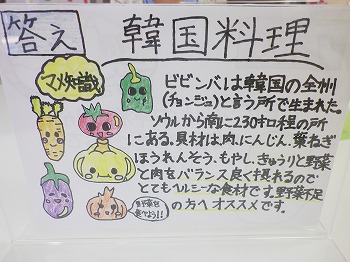 答え
韓国料理
マメ知識
ビビンバは韓国の全州
(チョンジュ)と言う所で生まれた
ソウルから南に230キロ程の所
にある。具材は肉、にんじん、葉ねぎ
ほうれんそう、もやし、きゅうりと野菜
と肉をバランス良く摂れるので
とてもヘルシーな食材です。野菜不足
の方へオススメです。
野菜を
食べよう!!